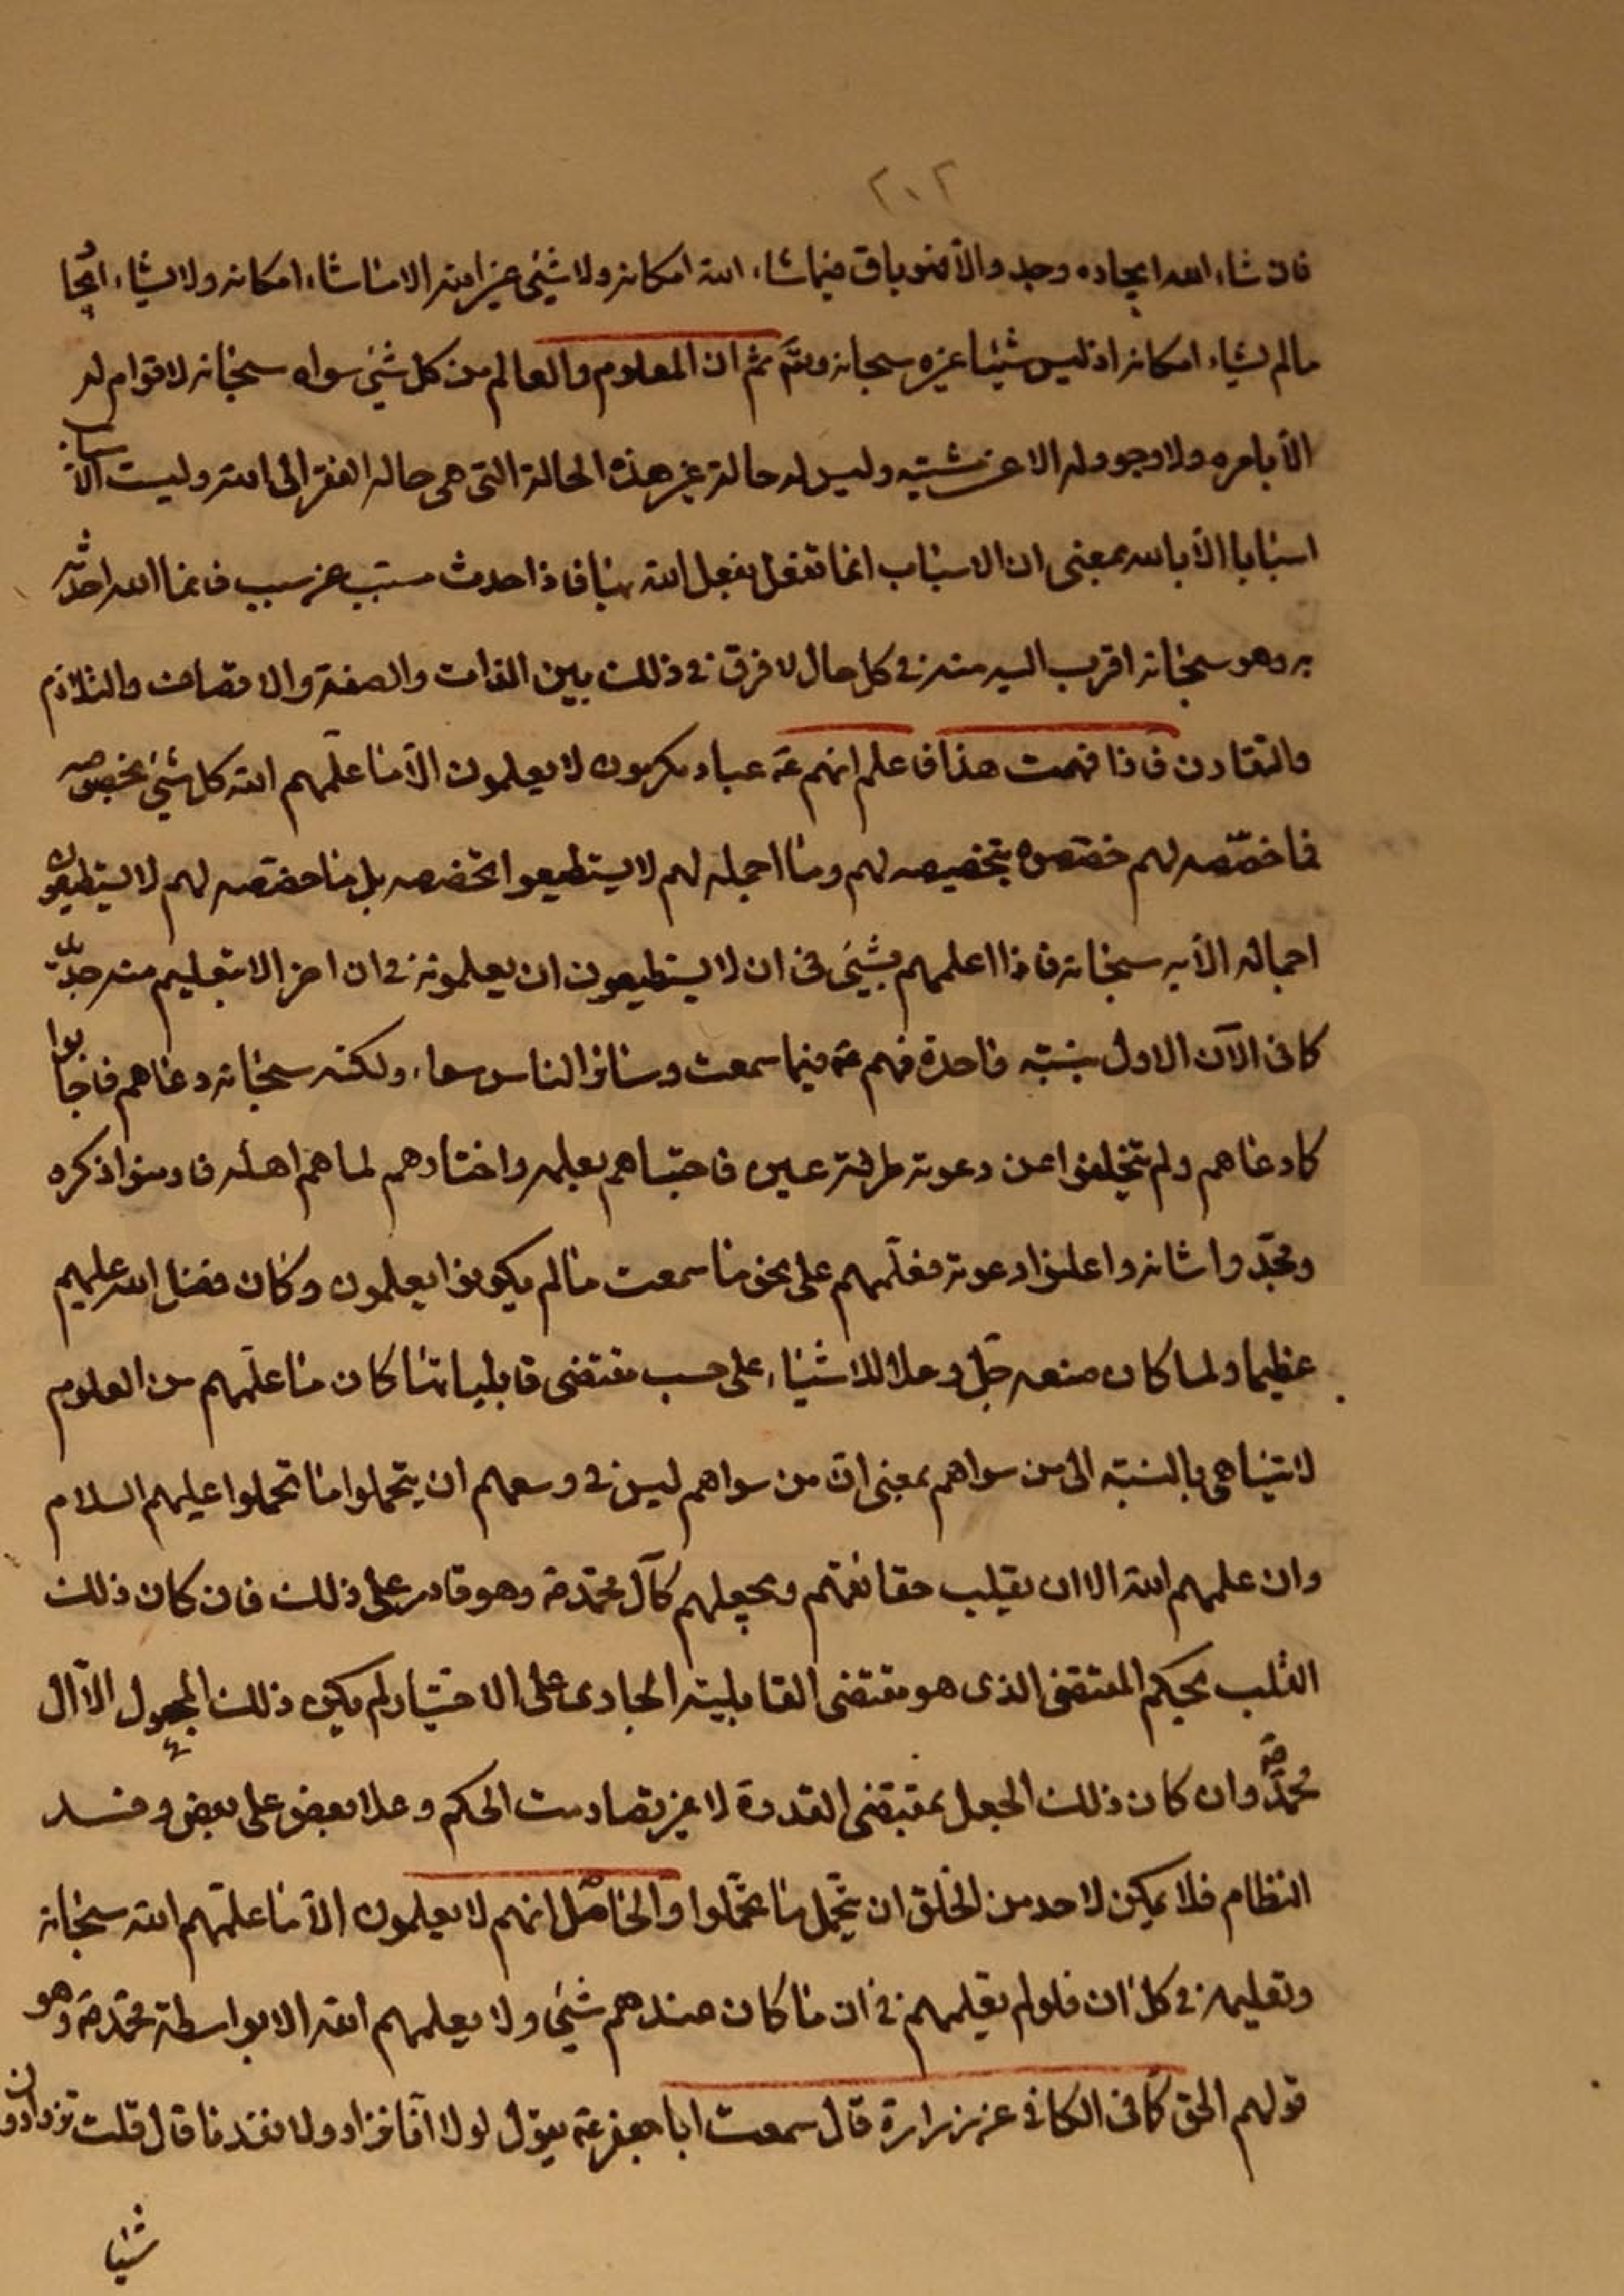 ٢٠٢
فان شاء الله ايجاده وجد والا فهو باق فيما شاء الله امكانه ولا شيئ غير الله الا ما شاء امكانه ولا يشاء ايجا
ما لم يشاء امكانه اذ ليس شيئا غيره سبحانه وتم ثم ان المعلوم والعالم من كل شيئ سواه سبحانه لا قوام له
الا بامره ولا وجود له الا عن مشيته وليس له حالة غير هذه الحالة التى هى حاله الفقر الى الله وليست الاسباب
اسبابا الا بالله بمعنى ان الاسباب انما تفعل بفعل الله بها فاذا احدث مسبب عن سبب فانما الله احدثه
به وهو سبحانه اقرب اليه منه فى كل حال لا فرق فى ذلك بين الذات والصفة والاتصاف والتلازم
والتقارن فاذا فهمت هذا فاعلم انهم عۤ عباد مكرمون لا يعلمون الا ما علّمهم الله كل شيئ بخصوصه
فما خصّصه لهم خصّصوه بتخصيصه لهم وما اجمله لهم لا يستطيعوا تخصصه بل ما خصّصه لهم لا يستطيعون
اجماله الا به سبحانه فاذا اعلمهم بشيئ فى ان لا يستطيعون ان يعلموه فى ان اخر الا بتعليم منه جديد
كما فى الآن الاول بنسبة واحدة فهم عۤ فيما سمعت وسائر الناس سواء ولكنه سبحانه دعاهم فاجابوا
كما دعاهم ولم يتخلفوا عن دعوته طرفة عين فاجتباهم بعلمه واختارهم لما هم اهله فادمنوا ذكره
ومجّدوا شانه واعلنوا دعوته فعلّمهم على نحو ما سمعت ما لم يكونوا يعلمون وكان فضل الله عليهم
عظيما ولما كان صنعه جلّ وعلا للاشياء على حسب مقتضى قابلياتها كان ما علّمهم من العلوم
لا يتناهى بالنسبة الى من سواهم بمعنى انّ من سواهم ليس فى وسعهم ان يتحملوا ما تحملوا عليهم السلام
وان علمهم الله الا ان يقلب حقائقهم ويجعلهم كآل محمّد صۤ وهو قادر على ذلك فان كان ذلك
القلب بحكم المقتضى الذى هو مقتضى القابلية الجارى على الاختيار لم يكن ذلك المجعول الا آل
محمّد صۤ وان كان ذلك الجعل بمقتضى القدرة لا غير تصادمت الحكم وعلا بعض على بعض وفسد
النظام فلا يمكن لاحد من الخلق ان يتحمل ما تحمّلوا والحاصل انهم لا يعلمون الا ما علّمهم الله سبحانه
وتعليمه فى كل ان فلو لم يعلمهم فى ان ما كان عندهم شيئ ولا يعلمهم الله الا بواسطة محمّد صۤ وهو
قولهم الحق كما فى الكافى عن زرارة قال سمعت ابا جعفر عۤ يقول لولا انا نزاد لا نفدنا قال قلت تزدادون
شيئا